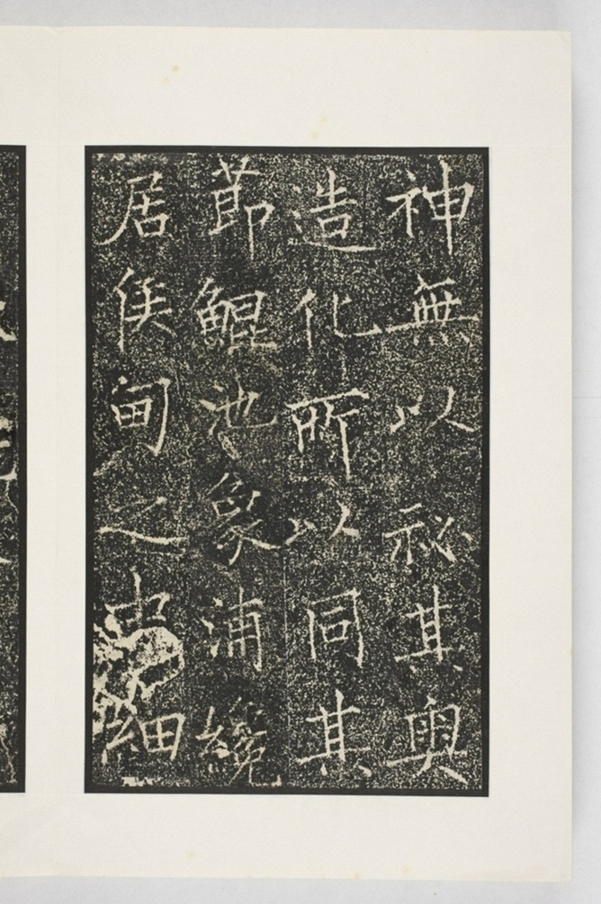 神無以祕其奥
造化所以同其
節鯤池象浦纔
居侯甸之中細